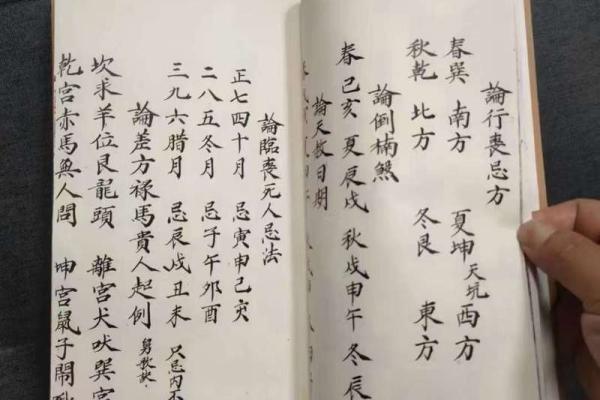 論行喪忌方
春巽 南方 夏坤天坑西方
秋乾 北方 冬艮 東方
論倒楠煞
春己亥 夏辰戌 秋戌申午 冬辰
論天赦日期
論臨喪死人忌法
正七四十月 忌寅申己亥
二八五冬月 忌子午卯酉
三九六腊月 忌辰戌丑未 只忌内不
論差方祿馬貴人起例
坎求羊位艮龍頭 離宮犬吠巽宮
乾宮赤馬無人問 坤宮鼠子鬧